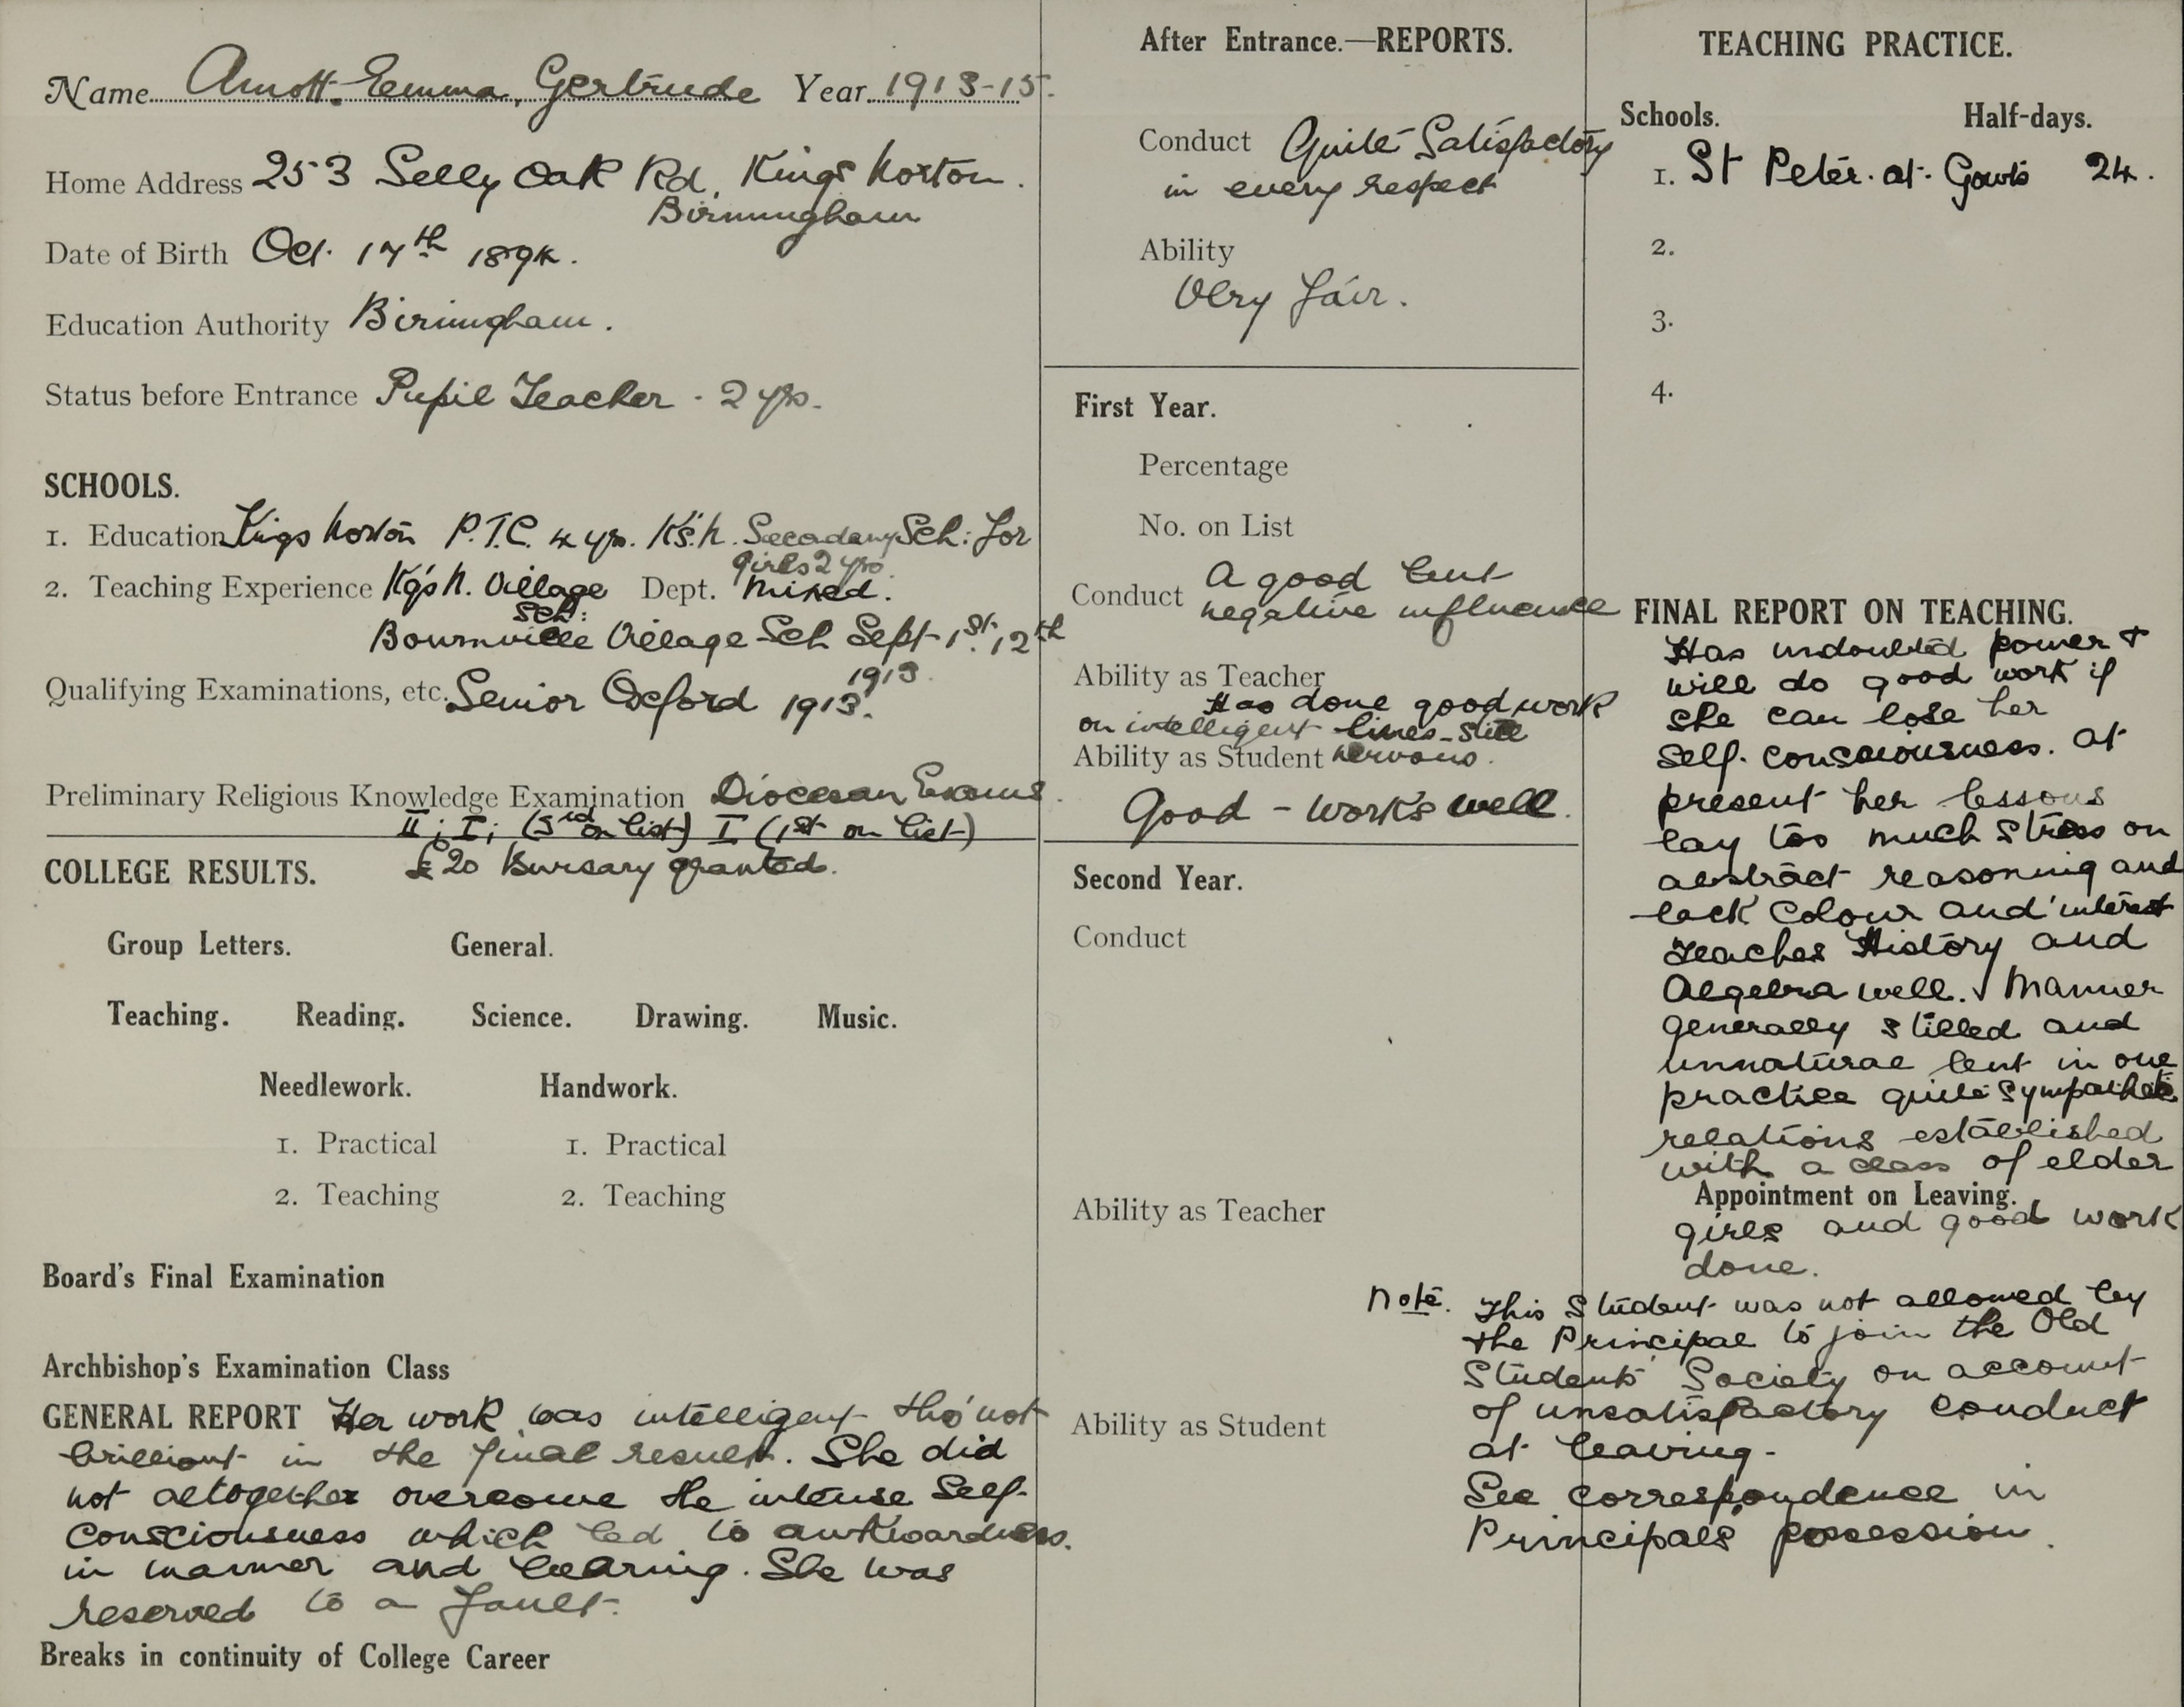 Name Arnott. Emma, Gertrude Year 1913-15.
Home Address 253 Selly Oak Rd, Kings Norton.
Birmingham
Date of Birth Oct. 17th 1894.
Education Authority Birmingham.
Status before Entrance Pupil Teacher - 2 yrs.
SCHOOLS.
1. Education Kings Norton P.T.C. 4 yrs. K's. N. Secondary Sch: for
girls 2 yrs.
2. Teaching Experience Kg's N. Village Dept. Mixed.
Sch:
Bournville Village Sch Sept 1st. 12th
1913.
Qualifying Examinations, etc. Senior Oxford 1913.
Preliminary Religious Knowledge Examination Diocesan Exams.
II; I; (3rd on list) I (1st on list)
£20 Bursary granted.
COLLEGE RESULTS.
Group Letters. General.
Teaching. Reading. Science. Drawing. Music.
Needlework. Handwork.
1. Practical 1. Practical
2. Teaching 2. Teaching
Board's Final Examination
Archbishop's Examination Class
GENERAL REPORT Her work was intelligent tho' not
brilliant in the final result. She did
not altogether overcome the intense self-
consciousness which led to awkwardness.
in manner and bearing. She was
reserved to a fault.
Breaks in continuity of College Career
After Entrance.—REPORTS.
Conduct Quite Satisfactory
in every respect
Ability
Very fair.
First Year.
Percentage
No. on List
Conduct A good but
negative influence
Ability as Teacher
Has done good work
on intelligent lines - still
Ability as Student nervous.
Good - works well.
Second Year.
Conduct
Ability as Teacher
Ability as Student
TEACHING PRACTICE.
Schools. Half-days.
1. St Peter. at. Gowts 24.
2.
3.
4.
FINAL REPORT ON TEACHING.
Has undoubted power &
will do good work if
she can lose her
self-consciousness. At
present her lessons
lay too much stress on
abstract reasoning and
lack colour and interest
Teaches History and
Algebra well. Manner
generally stilted and
unnatural but in one
practice quite sympathetic
relations established
with a class of elder
Appointment on Leaving.
girls and good work
done.
Note. This Student was not allowed by
the Principal to join the Old
Students' Society on account
of unsatisfactory conduct
at leaving -
See correspondence in
Principals' possession.